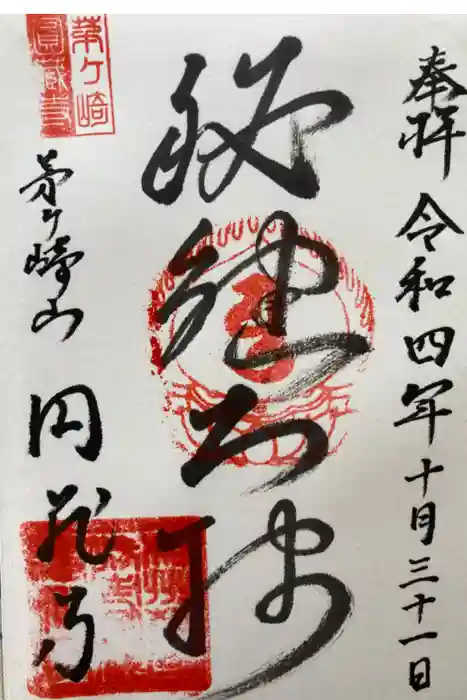 奉拝 令和四年十月三十一日
秘鍵大師
茅ヶ崎山 円蔵寺
茅ヶ崎
圓蔵寺